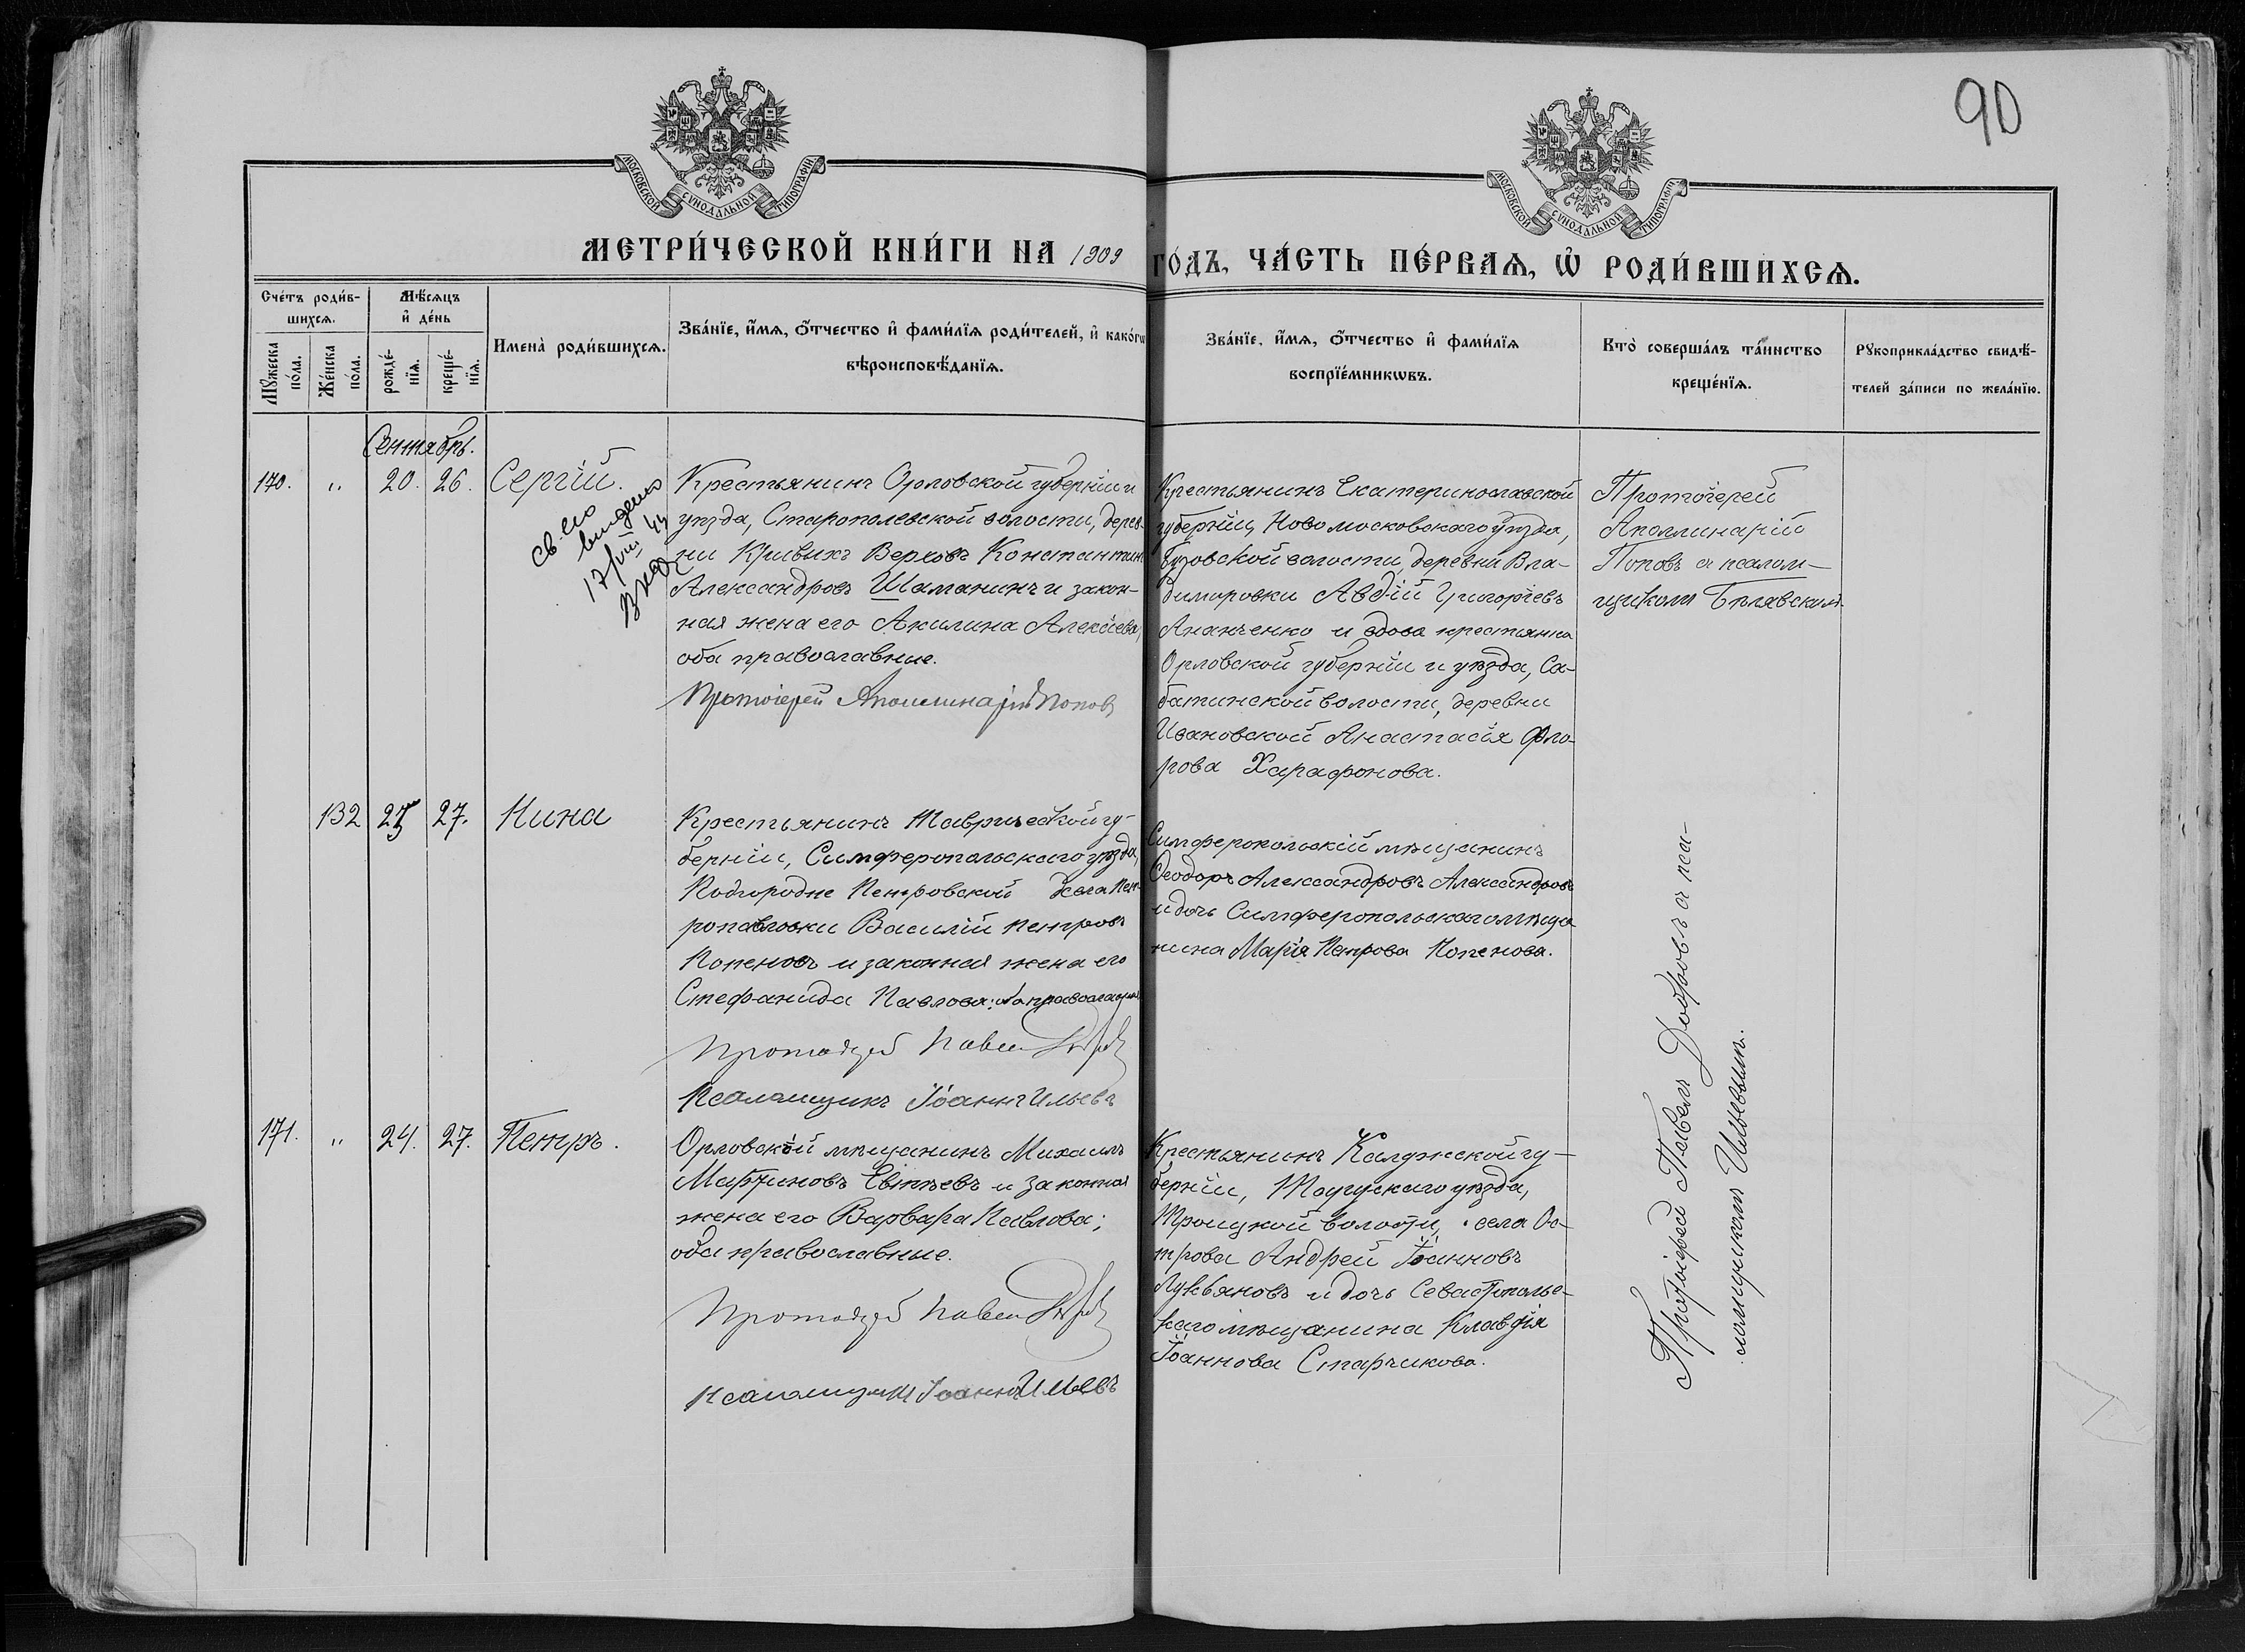 90
МОСКОВСКОЙ СѴНОДАЛЬНОЙ ТИПОГРАФІИ
МОСКОВСКОЙ СѴНОДАЛЬНОЙ ТИПОГРАФІИ
МЕТРИ́ЧЕСКОЙ КНИ́ГИ НА 1909
ГО́ДЪ, ЧА́СТЬ ПЕ́РВАѦ, Ѽ РОДИ́ВШИХСѦ.
Сче́тъ роди́в-
шихсѧ.
Мꙋ́жеска
по́ла.
Же́нска
по́ла.
Мѣ́сѧцъ
и҆ де́нь
рожде́-
нїѧ.
креще́-
нїѧ.
Имена̀ роди́вшихсѧ.
Зва́нїе, и҆́мѧ, ѻ҆́тчество и҆ фами́лїѧ роди́телей, и҆ како́гѡ
вѣроисповѣ́данїѧ.
Зва́нїе, и҆́мѧ, ѻ҆́тчество и҆ фами́лїѧ
воспрїе́мникѡвъ.
Кто̀ соверша́лъ та́инство
креще́нїѧ.
Рꙋкоприкла́дство свидѣ́-
телей за́писи по жела́нїю.
Сентябрь.
170. " 20. 26. Сергій.
св-во
выдано
17/VIII 44
Крестьянинъ Орловской губерніи и
уѣзда, Старополевской волости, дерев-
ни Кривихъ Верховъ Константинъ
Александровъ Шаманинъ и закон-
ная жена его Акилина Алексіева,
оба православные.
Протоіерей Аполлинарій Поповъ
Крестьянинъ Екатеринославской
губерніи, Новомосковскаго уѣзда,
волости, деревни Вла-
димировки Авдій Григоріевъ
Ананченко и вдова крестьянка
Орловской губерніи и уѣзда, Са-
батинской волости, деревни
Ивановской Анастасія Фло-
рова Харафонова.
Протоіерей
Аполлинарій
Поповъ съ псалом-
щикомъ Бѣлявскимъ.
132 27. Нина
Крестьянинъ Таврической гу-
берніи, Симферопольскаго уѣзда,
Подгородне Петровской села Пет-
ропавловки Василій Петровъ
Копеновъ и законная жена его
Стефанида Павлова; православные
Протоіерей Павелъ
Псаломщикъ Іоаннъ Ильевъ
Симферопольскій мѣщанинъ
Ѳеодоръ Александровъ Александровъ
и дочь Симферопольскаго мѣща
нина Марія Петрова Копенова.
171. " 24. 27. Петръ.
Орловскій мѣщанинъ Михаилъ
Мартиновъ Евтѣевъ и законная
жена его Варвара Павлова;
оба православные.
Протоіерей Павелъ
Псаломщикъ Іоаннъ Ильевъ
Крестьянинъ Калужской гу-
берніи, Тарускаго уѣзда,
Троицкой волости, села Ос-
трова Андрей Іоанновъ
Лукьяновъ и дочь Севастополь-
скаго мѣщанина Клавдія
Іоаннова Старчикова.
Протоіерей Павелъ Добровъ съ пса-
ломщикомъ Ильевымъ.